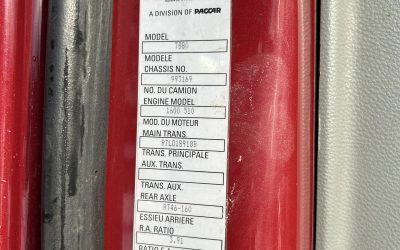 A DIVISION OF PACCAR
MODEL
T880
MODELE
CHASSIS NO.
993169
NO. DU CAMION
ENGINE MODEL
MOD. DU MOTEUR
MAIN TRANS.
RTLO18918B
TRANS. PRINCIPALE
AUX. TRANS.
TRANS. AUX.
REAR AXLE
RT46-160
ESSIEU ARRIERE
R.A. RATIO
3.91